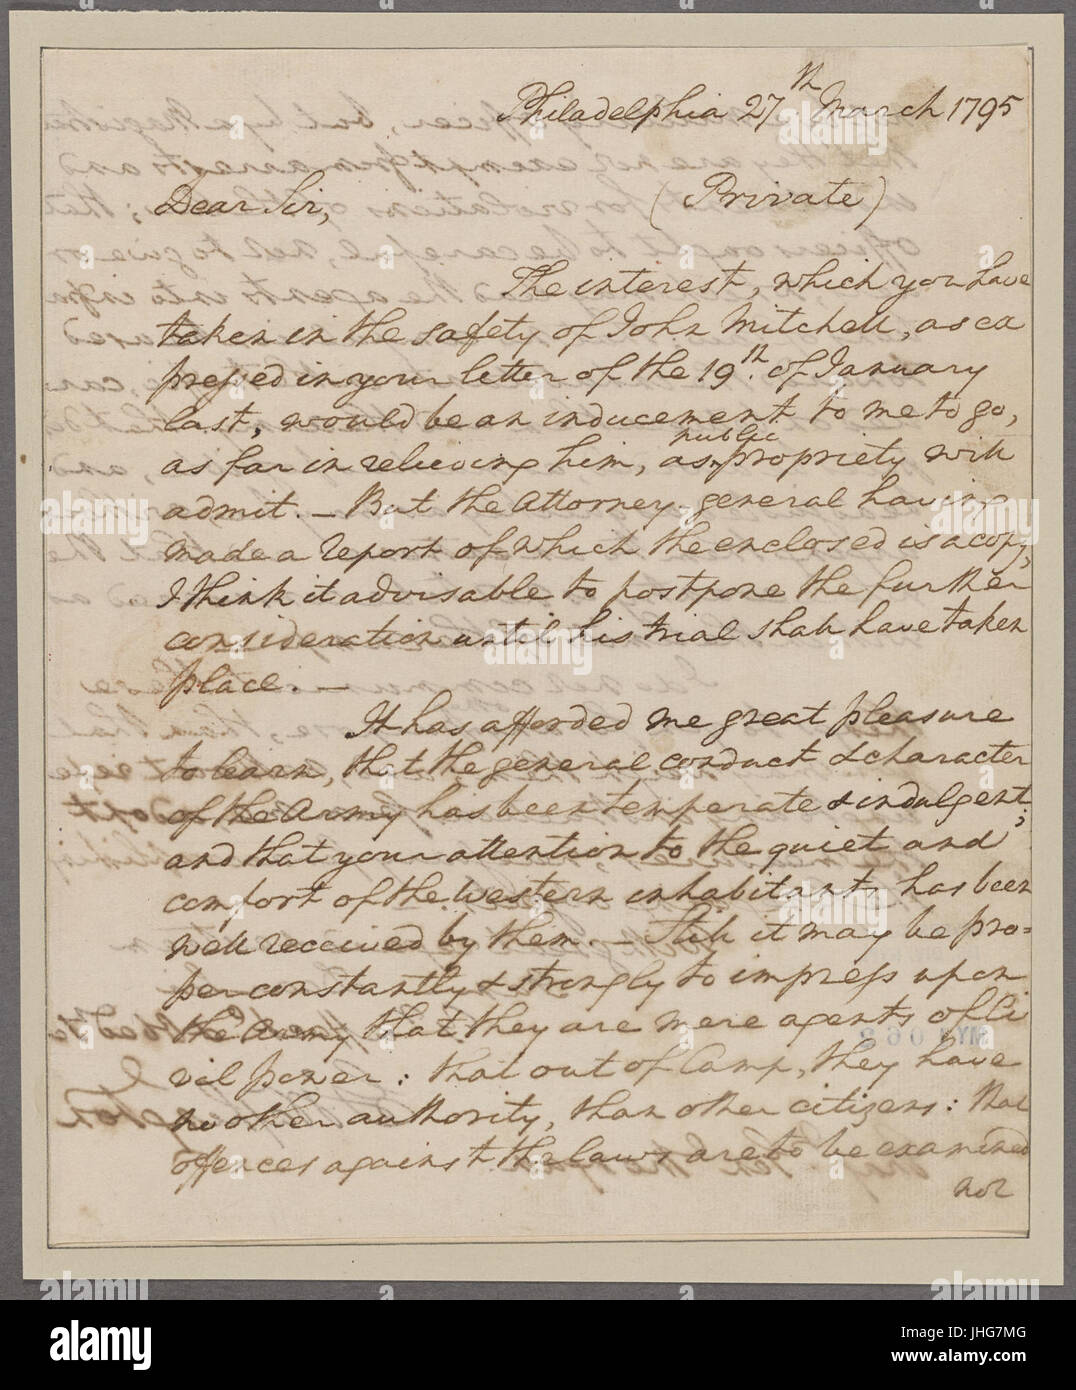 Philadelphia 27th March 1795
Dear Sir, (Private)
The interest, which you have
taken in the safety of John Mitchell, as ex
pressed in your letter of the 19th. of January
last, would be an inducement to me to go,
public
as far in relieving him, as propriety will
admit. — But the Attorney-general having
made a report of which the enclosed is a copy,
I think it advisable to postpone the further
consideration until his trial shall have taken
place. —
It has afforded me great pleasure
to learn, that the general conduct & character
of the Army has been temperate & indulgent;
and that your attention to the quiet and
comfort of the western inhabitants has been
well received by them. — Still it may be pro=
per constantly & strongly to impress upon
the Army that they are mere agents of Ci
vil power: that out of Camp, they have
no other authority, than other citizens: that
offences against the laws are to be examined
not
alamy
alamy stock photo
JHG7MG
www.alamy.com